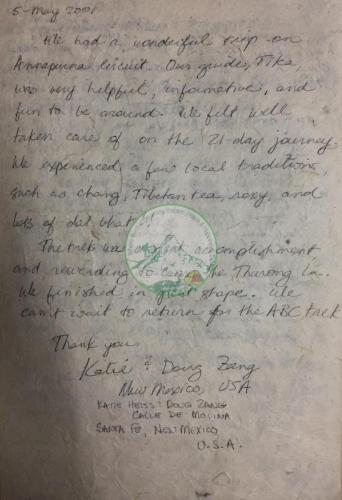 5-May 2001
We had a wonderful trip on
Annapurna Circuit. Our guide, Tika,
was very helpful, informative, and
fun to be around. We felt well
taken care of on the 21-day journey.
We experienced a few local traditions,
such as chang, Tibetan tea, roxy, and
lots of dal bhat!!
The trek was a great accomplishment
and rewarding to cross the Thorong La.
We finished in great shape. We
can't wait to return for the ABC trek
Thank you
Katie & Doug Zang
New Mexico, USA
KATIE HEISS & DOUG ZANG
CALLE DE MOLINA
SANTA FE, NEW MEXICO
U.S.A.